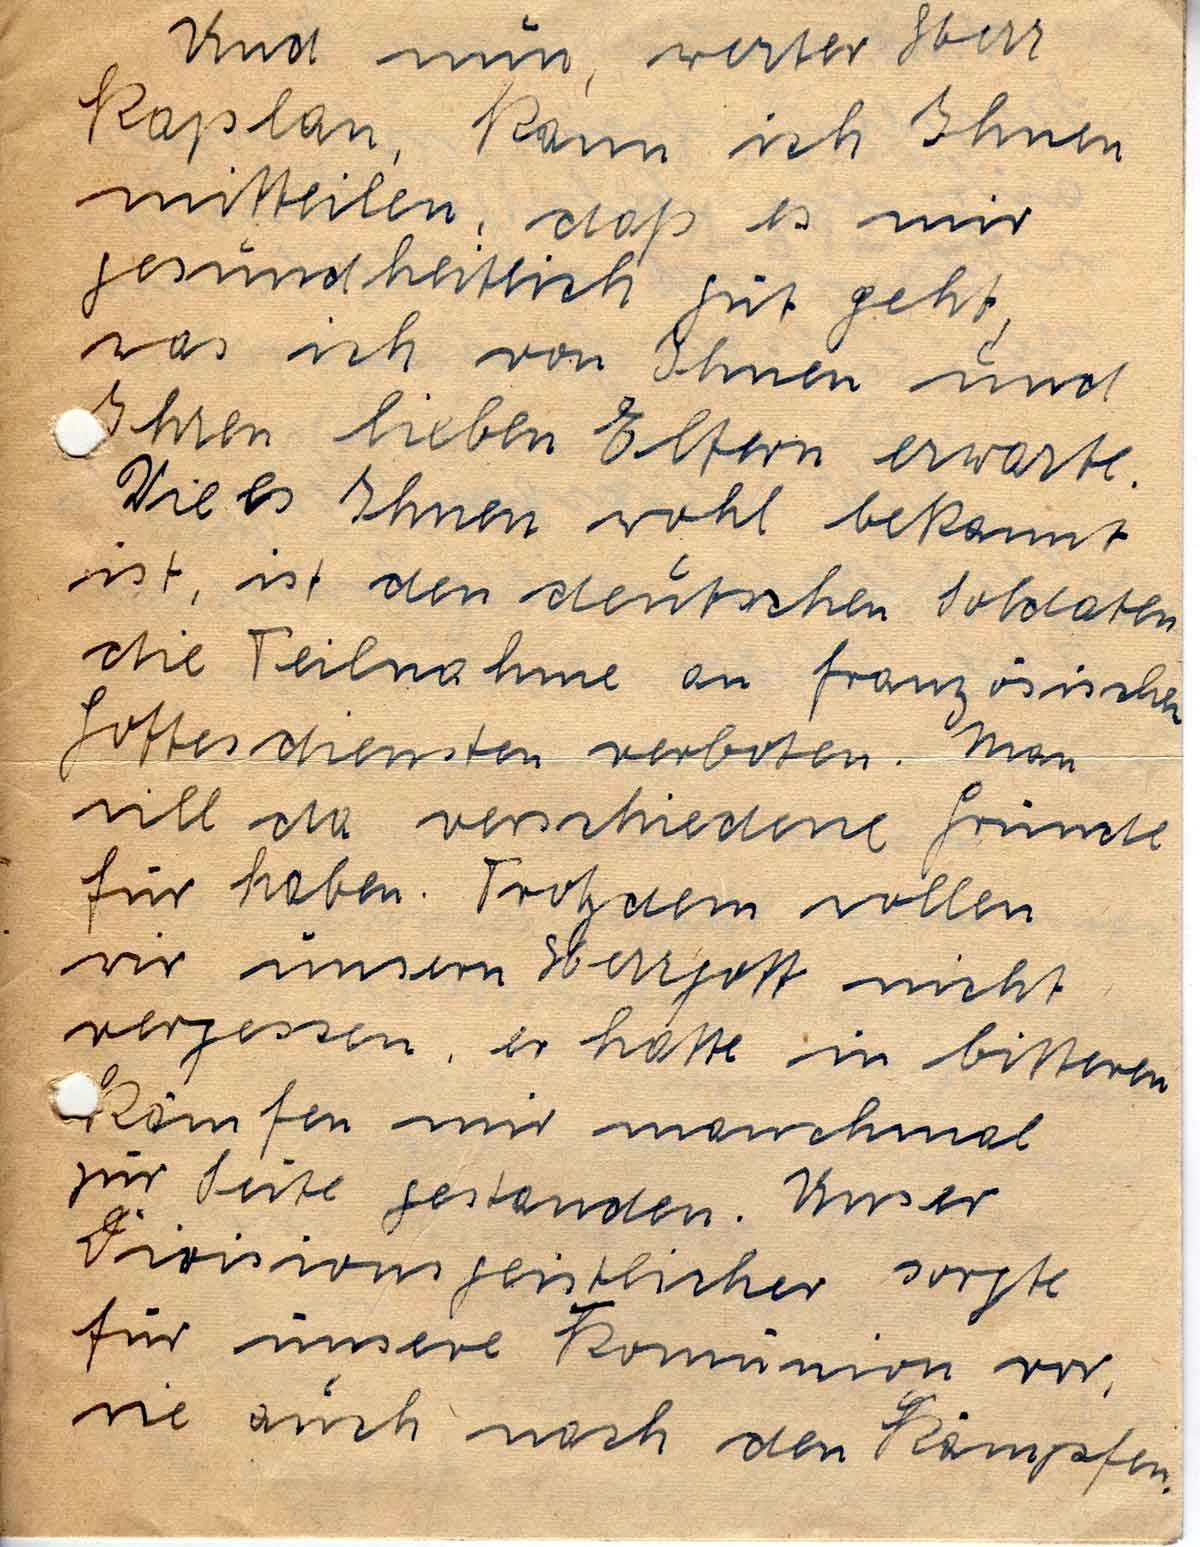 Und nun, werter Herr
Kaplan, kann ich Ihnen
mitteilen, daß es mir
gesundheitlich gut geht,
was ich von Ihnen und
Ihren lieben Eltern erwarte.
Wie es Ihnen wohl bekannt
ist, ist den deutschen Soldaten
die Teilnahme an französischen
Gottesdiensten verboten. Man
will da verschiedene Gründe
für haben. Trotzdem wollen
wir unsern Herrgott nicht
vergessen, er hatte in bitteren
Kämfen mir manchmal
zur Seite gestanden. Unser
Divisionsgeistlicher sorgte
für unsere Komunion vor,
wie auch nach den Kämpfen.